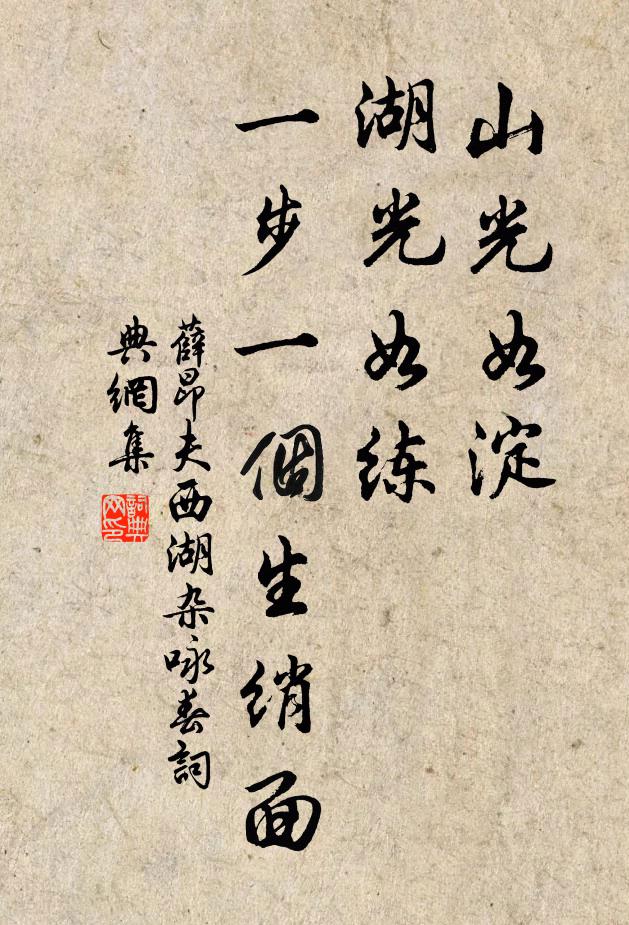 山光如淀
湖光如练
一步一個生绡面
薛昂夫西湖杂咏春詞
典網集
詞典
网印